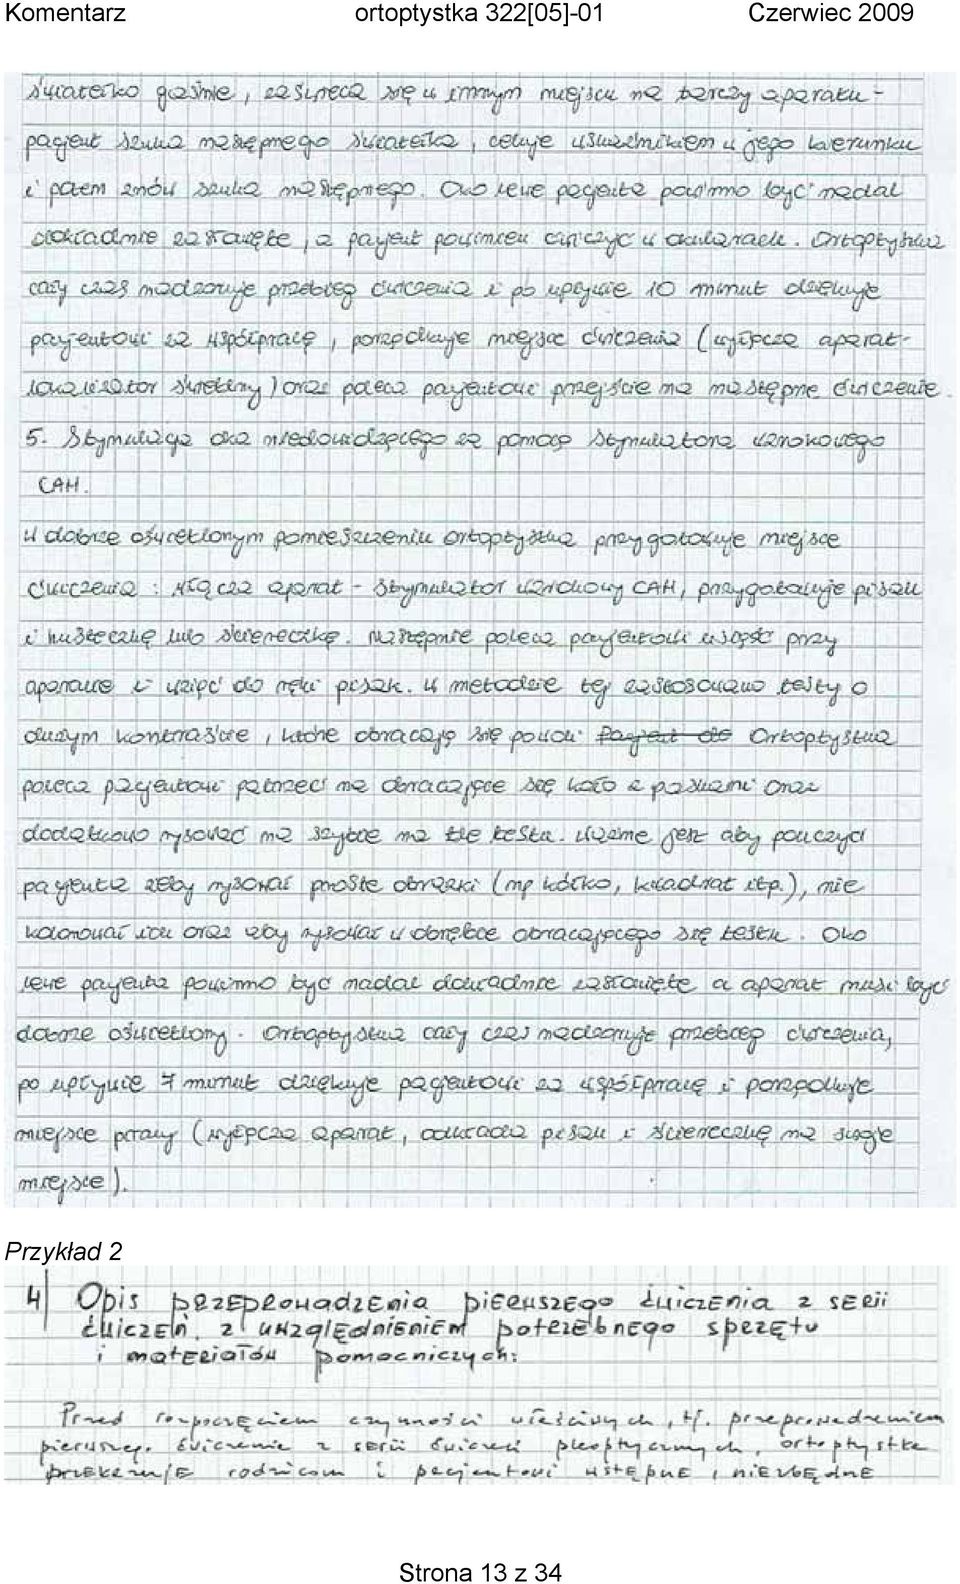 Komentarz ortoptystka 322[05]-01 Czerwiec 2009
światełko gaśnie, zaświeca się w innym miejscu na tarczy aparatu -
pacjent szuka następnego światełka, celuje wskaźnikiem w jego kierunku
i potem znów szuka następnego. Oko lewe pacjenta powinno być nadal
dokładnie zasłonięte, a pacjent powinien ćwiczyć w okularach. Ortoptystka
cały czas nadzoruje przebieg ćwiczenia i po upływie 10 minut dziękuje
pacjentowi za współpracę, porządkuje miejsce ćwiczenia (wyłącza aparat -
lokalizator świetlny) oraz poleca pacjentowi przejście na następne ćwiczenie.
5. Stymulacja oka niedowidzącego za pomocą stymulatora wzrokowego
CAM.
W dobrze oświetlonym pomieszczeniu ortoptystka przygotowuje miejsce
ćwiczenia: włącza aparat - stymulator wzrokowy CAM, przygotowuje pisak
i husteczkę lub ściereczkę. Następnie poleca pacjentowi usiąść przy
aparacie i wziąć do ręki pisak. W metodzie tej zastosowano testy o
dużym kontraście, które obracają się powoli. Pacjent Ortoptystka
poleca pacjentowi patrzeć na obracające się koło z paskami oraz
dodatkowo rysować na szybce na tle testu. Ważne jest aby pouczyć
pacjenta żeby rysować proste obrazki (np kółko, kwadrat itp.), nie
kolorować ich oraz żeby rysować w obrębie obracającego się testu. Oko
lewe pacjenta powinno być nadal dokładnie zasłonięte a aparat musi być
dobrze oświetlony. Ortoptystka cały czas nadzoruje przebieg ćwiczenia,
po upływie 7 minut dziękuje pacjentowi za współpracę i porządkuje
miejsce pracy (wyłącza aparat, odkłada pisak i ściereczkę na swoje
miejsce).
Przykład 2
4) Opis przeprowadzenia pierwszego ćwiczenia z serii
ćwiczeń, z uwzględnieniem potrzebnego sprzętu
i materiałów pomocniczych:
Przed rozpoczęciem czynności właściwych, tj. przeprowadzeniem
pierwszego ćwiczenia z serii ćwiczeń pleoptycznych, ortoptystka
przekazuje rodzicom i pacjentowi wstępne, niezbędne
Strona 13 z 34